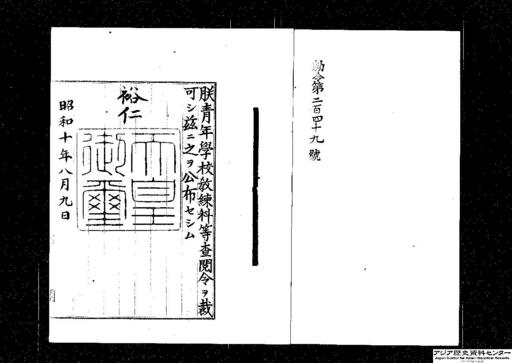 勅令第二百四十九號
朕青年學校敎練科等査閲令ヲ裁
可シ玆ニ之ヲ公布セシム
裕仁
天皇
御璽
昭和十年八月九日
アジア歴史資料センター
Japan Center for Asian Historical Records